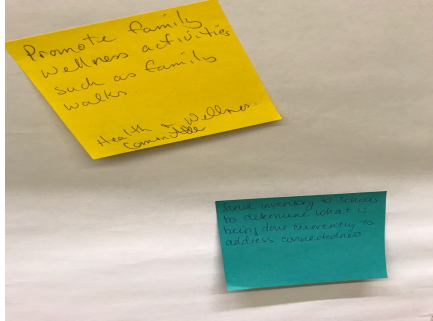 Promote family
wellness activities
such as family
walks.
Health & Wellness
Committee
Send inventory to schools
to determine what is
being done currently to
address connectedness